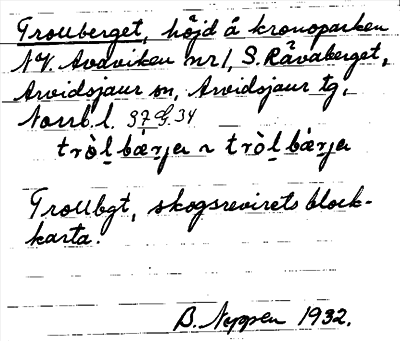 Trollberget, höjd å kronoparken
NV. Avaviken nr 1, S. Råvaberget,
Arvidsjaur sn, Arvidsjaur tg,
Norrb. l. 37 G. 34
tròl bær̥ja ~ tròl bær̥ja
Trollbgt, skogsrevirets block-
karta.
B. Neppen 1932.